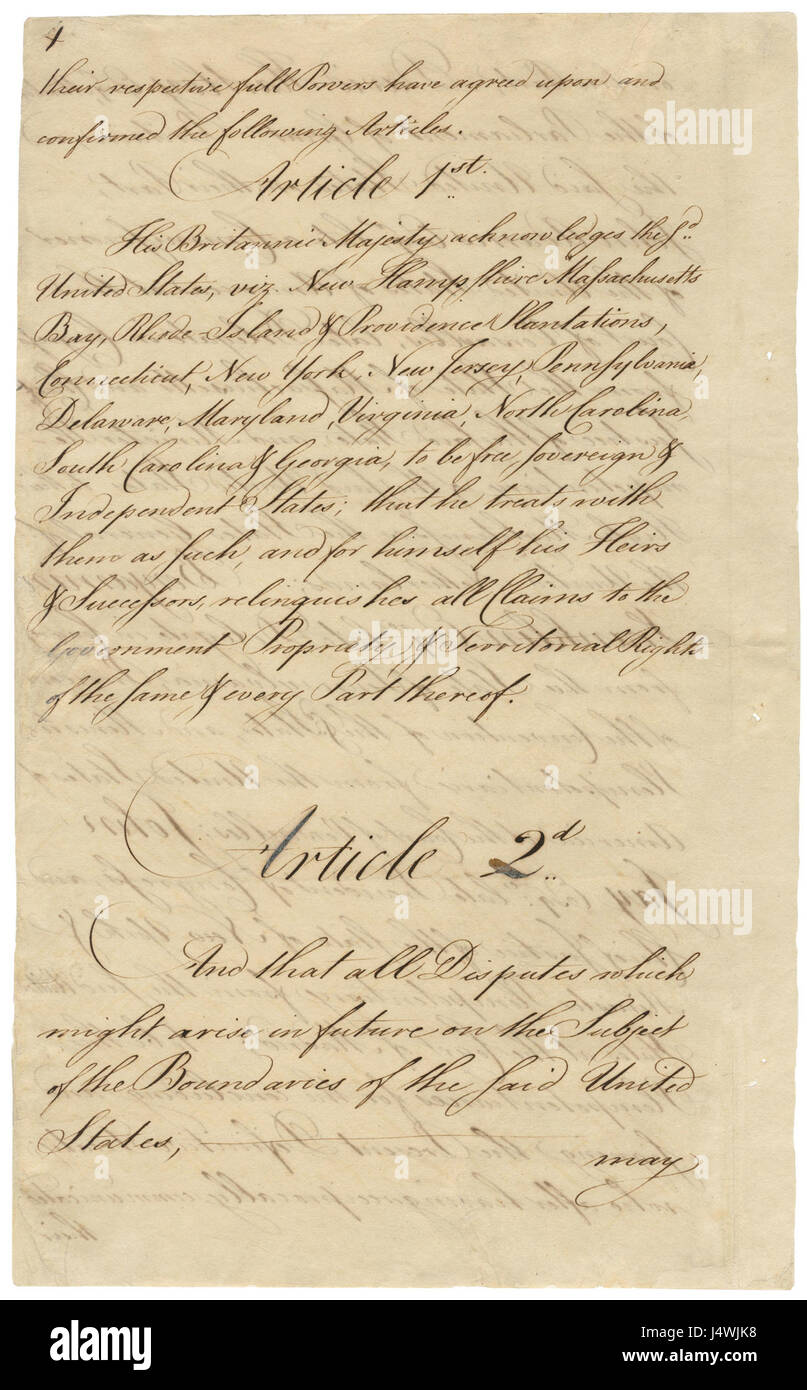 4
their respective full Powers have agreed upon and
confirmed the following Articles.
Article 1st.
His Britannic Majesty acknowledges the sd.
United States, viz. New Hampshire Massachusetts
Bay, Rhode-Island & Providence Plantations,
Connecticut, New York, New Jersey, Pennsylvania,
Delaware, Maryland, Virginia, North Carolina,
South Carolina & Georgia, to be free, sovereign &
Independent States; that he treats with
them as such, and for himself his Heirs
& Successors, relinquishes all Claims to the
Government Propriety & Territorial Rights
of the same & every Part thereof.
Article 2d.
And that all Disputes which
might arise in future on the Subject
of the Boundaries of the said United
States,
may
alamy
alamy stock photo
J4WJK8
www.alamy.com